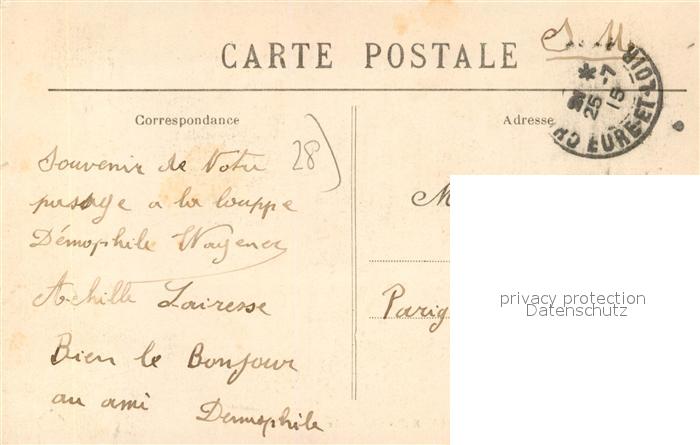 S. M.
CARTE POSTALE
* 25 -7 15
EURE-ET-LOIR
Correspondance
Adresse
28
Souvenir de Notre
passage a la louppe
Démophile
Achille Lairesse
Bien le Bonjour
au ami Demophile
M
Parig
privacy protection
Datenschutz